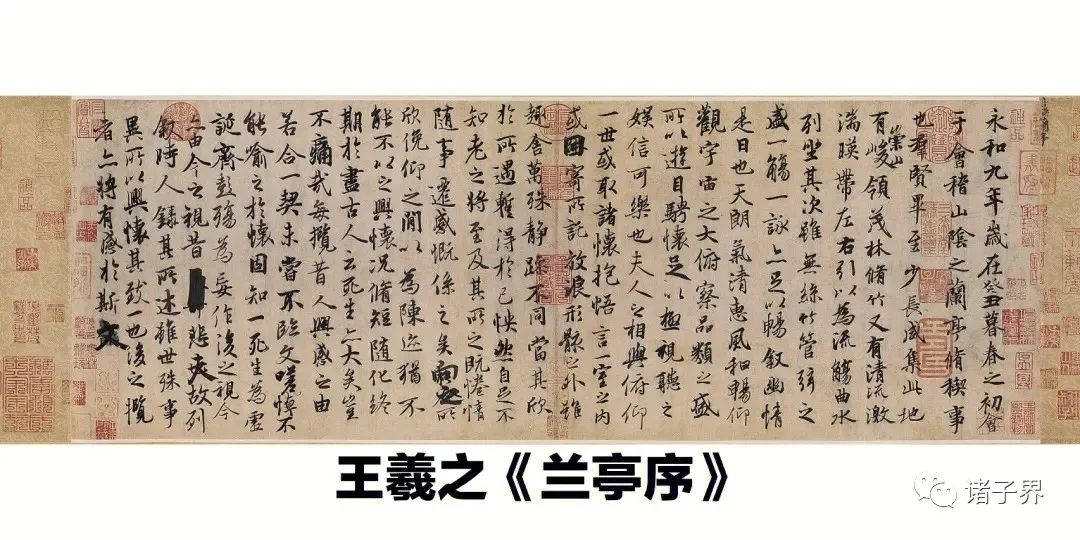 永和九年歲在癸丑暮春之初會
于會稽山陰之蘭亭脩稧事
也羣賢畢至少長咸集此地
有崇山峻領茂林脩竹又有清流激
湍暎帶左右引以為流觴曲水
列坐其次雖無絲竹管弦之
盛一觴一詠亦足以暢叙幽情
是日也天朗氣清惠風和暢仰
觀宇宙之大俯察品類之盛
所以遊目騁懷足以極視聽之
娛信可樂也夫人之相與俯仰
一世或取諸懷抱悟言一室之內
或因寄所託放浪形骸之外雖
趣舍萬殊静躁不同當其欣
於所遇暫得於己怏然自足不
知老之將至及其所之既惓情
隨事遷感慨係之矣向之所
欣俛仰之閒以為陳迹猶不
能不以之興懷況脩短隨化終
期於盡古人云死生亦大矣豈
不痛哉每攬昔人興感之由
若合一契未嘗不臨文嗟悼不
能喻之於懷固知一死生為虛
誕齊彭殤為妄作後之視今
亦由今之視昔悲夫故列
叙時人錄其所述雖世殊事
異所以興懷其致一也後之攬
者亦將有感於斯文
王羲之《兰亭序》
诸子界